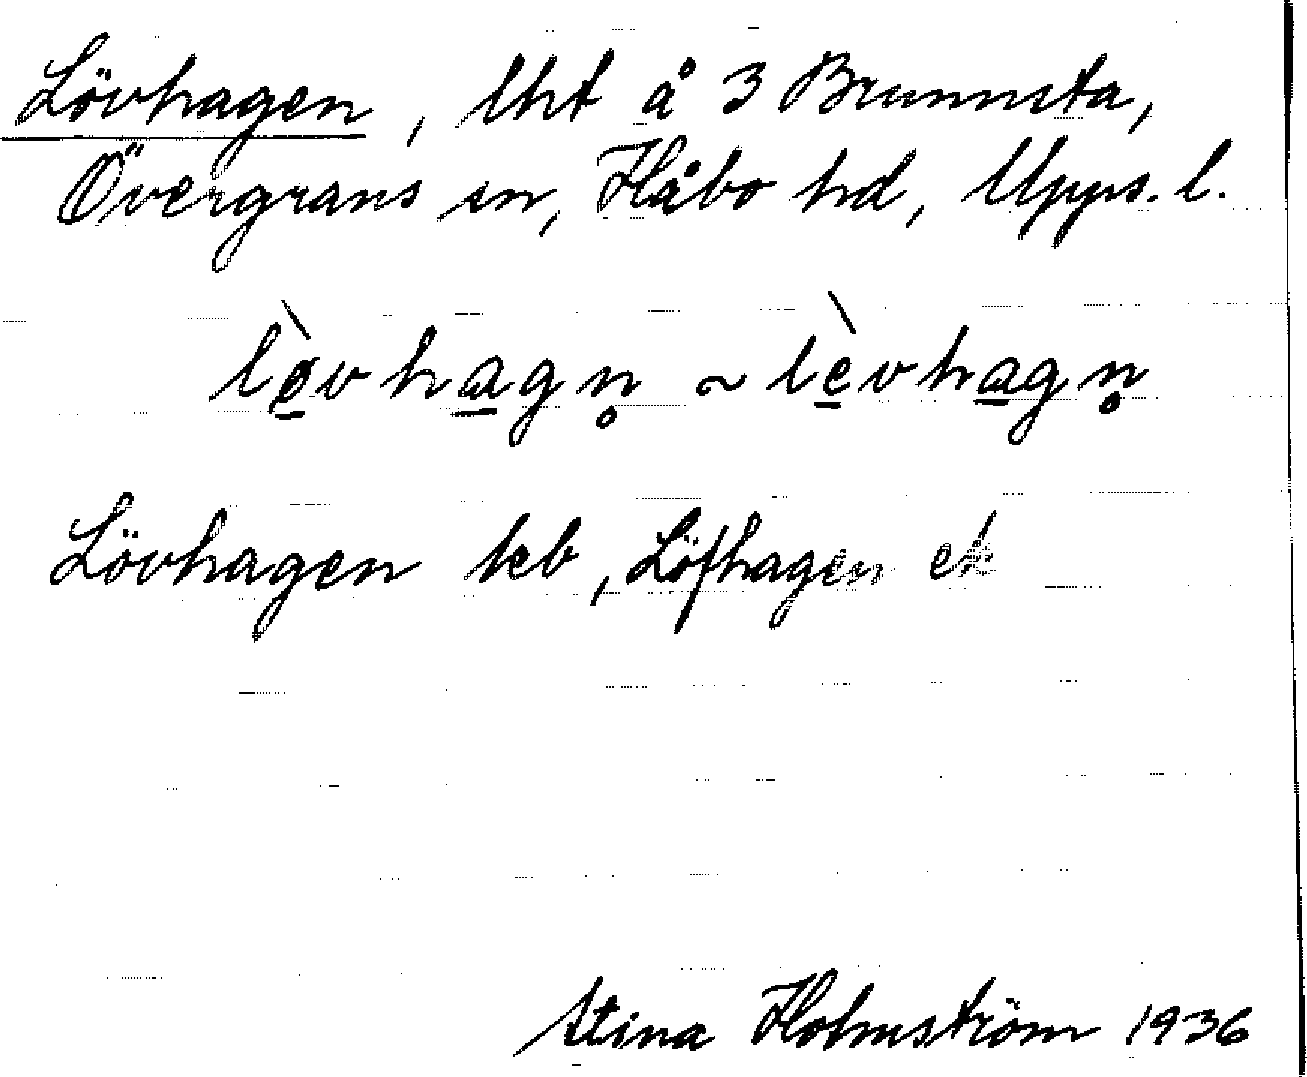 Lövhagen, lht å 3 Brunnsta,
Övergrans sn, Håbo hd, Upps. l.
lèvhagn̥ ~ lèvhagn̥
Lövhagen keb, Löfhagen ek
Stina Holmström 1936